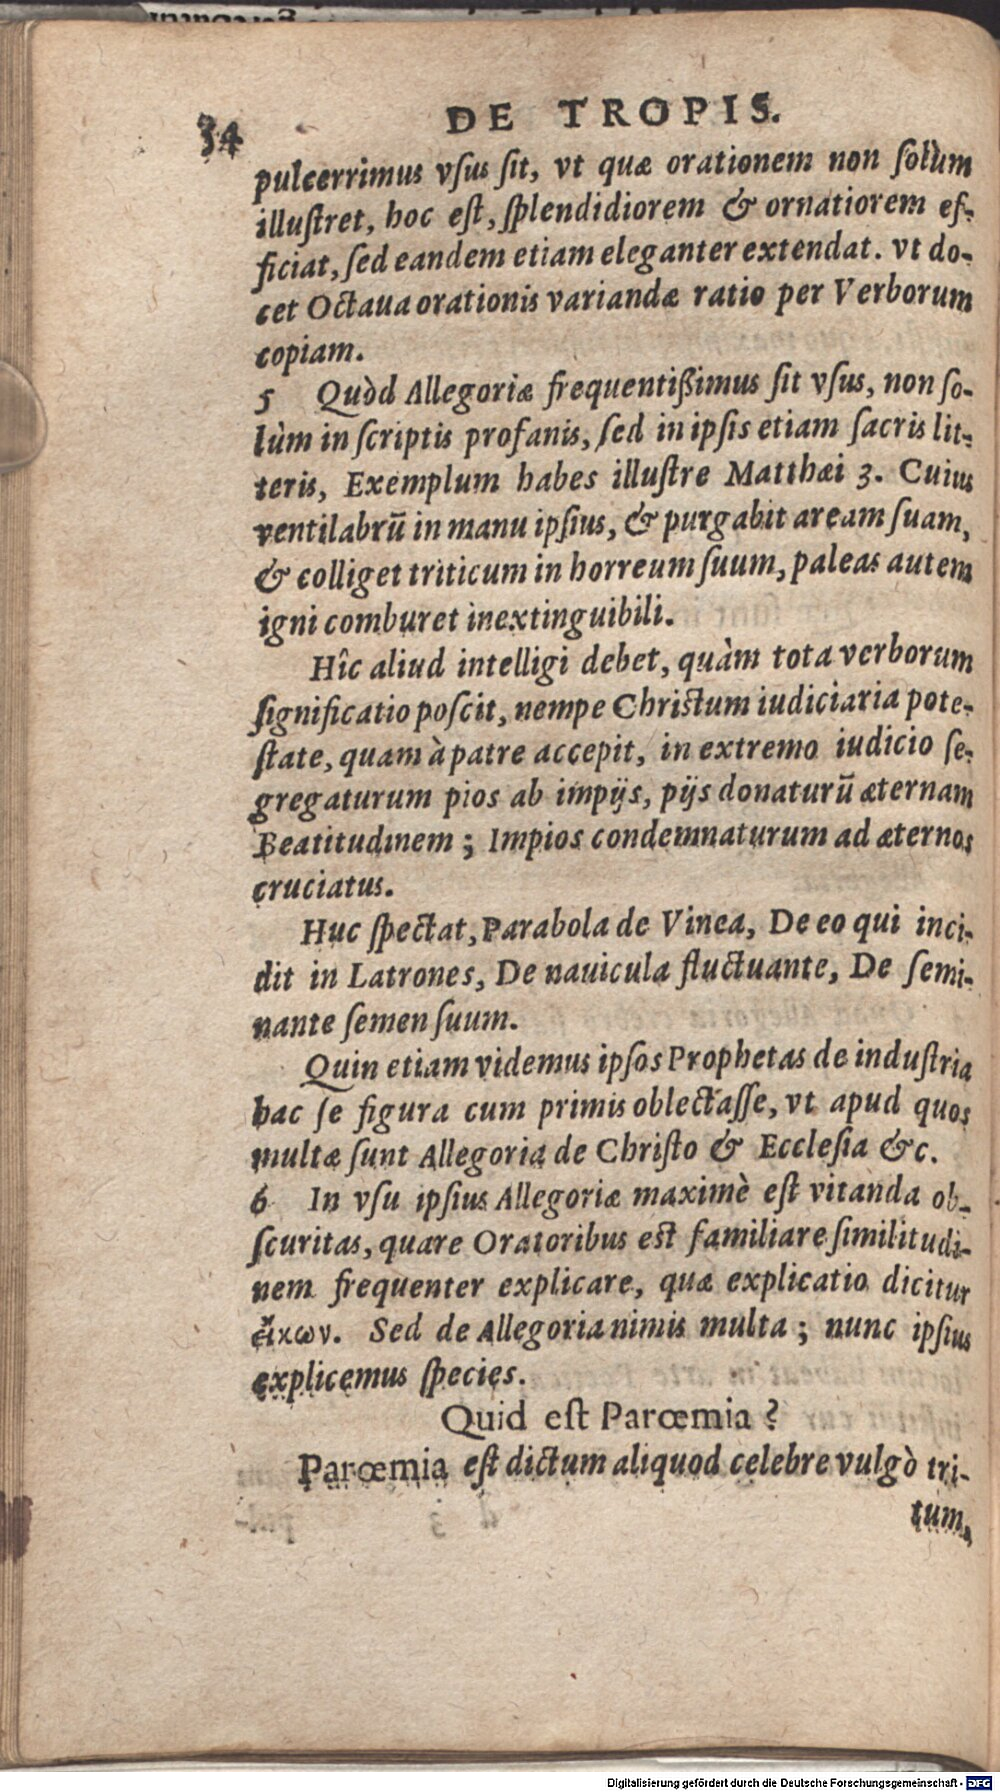 34
DE TROPIS.
pulcerrimus vſus ſit, vt quæ orationem non ſolùm
illuſtret, hoc eſt, ſplendidiorem & ornatiorem ef-
ficiat, ſed eandem etiam eleganter extendat. vt do-
cet Octaua orationis variandæ ratio per Verborum
copiam.
5 Quòd Allegoriæ frequentißimus ſit vſus, non ſo-
lùm in ſcriptis profanis, ſed in ipſis etiam ſacris lit-
teris, Exemplum habes illuſtre Matthæi 3. Cuius
ventilabrū in manu ipſius, & purgabit aream ſuam,
& colliget triticum in horreum ſuum, paleas autem
igni comburet inextinguibili.
Hîc aliud intelligi debet, quàm tota verborum
ſignificatio poſcit, nempe Chriſtum iudiciaria pote-
ſtate, quam à patre accepit, in extremo iudicio ſe-
gregaturum pios ab impijs, pijs donaturū æternam
Beatitudinem; Impios condemnaturum ad æternos
cruciatus.
Huc ſpectat, Parabola de Vinea, De eo qui inci-
dit in Latrones, De nauicula fluctuante, De ſemi-
nante ſemen ſuum.
Quin etiam videmus ipſos Prophetas de induſtria
hac ſe figura cum primis oblectaſſe, vt apud quos
multæ ſunt Allegoria de Chriſto & Eccleſia &c.
6 In vſu ipſius Allegoriæ maximè eſt vitanda ob-
ſcuritas, quare Oratoribus eſt familiare ſimilitudi-
nem frequenter explicare, quæ explicatio dicitur
εἴκων. Sed de Allegoria nimis multa; nunc ipſius
explicemus ſpecies.
Quid eſt Parœmia?
Parœmia eſt dictum aliquod celebre vulgò tri-
tum,
Digitalisierung gefördert durch die Deutsche Forschungsgemeinschaft - DFG